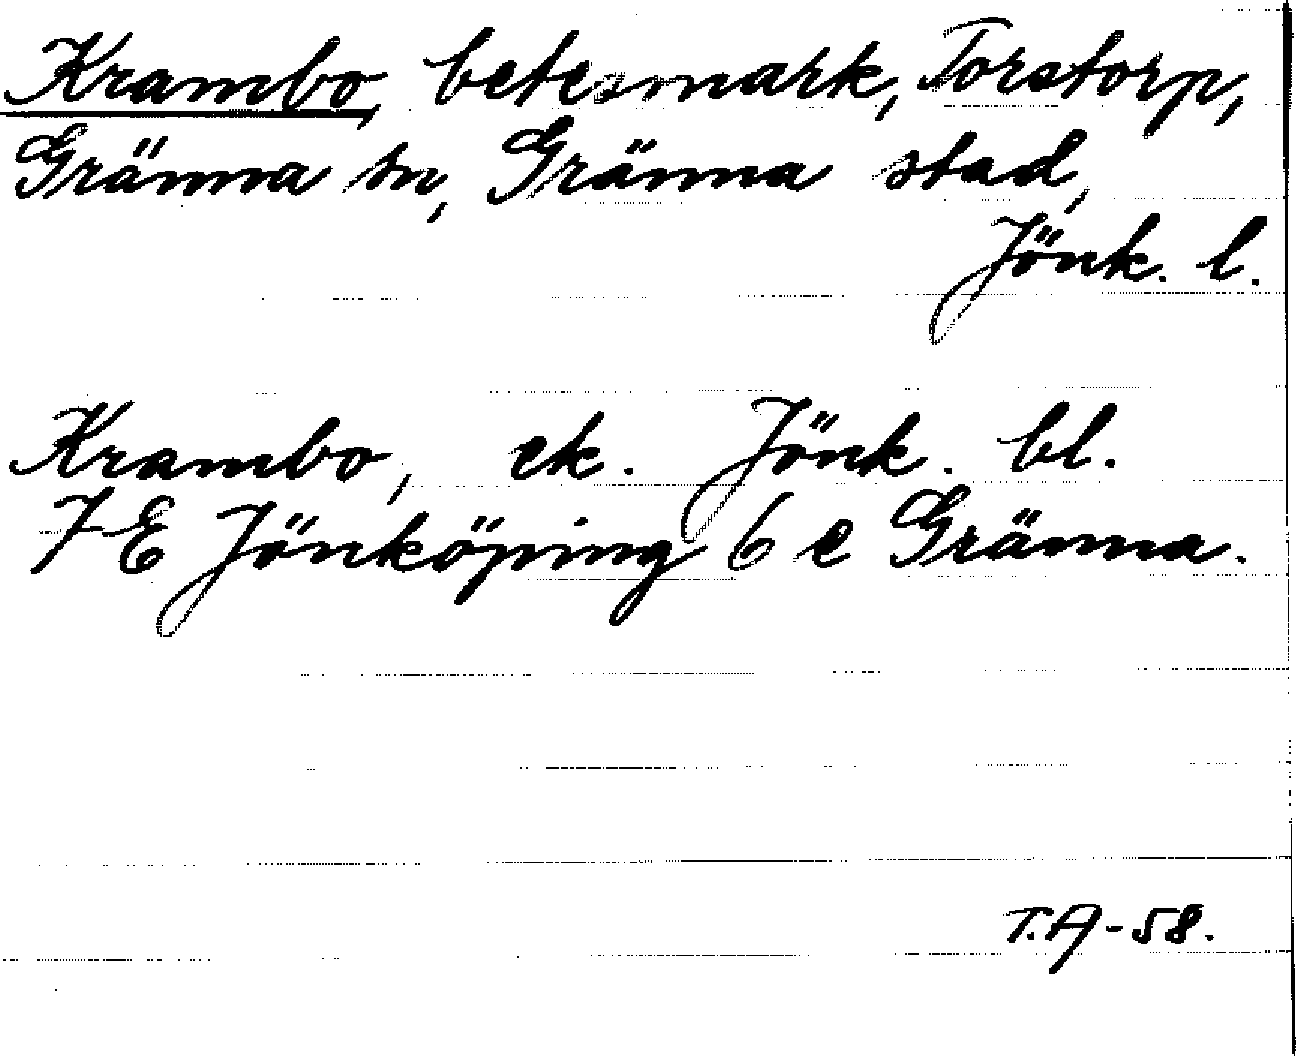 Krambo, betesmark, Torstorp,
Gränna sn, Gränna stad,
Jönk. l.
Krambo, ek. Jönk. bl.
7 E Jönköping 6 e Gränna.
T.A-58.